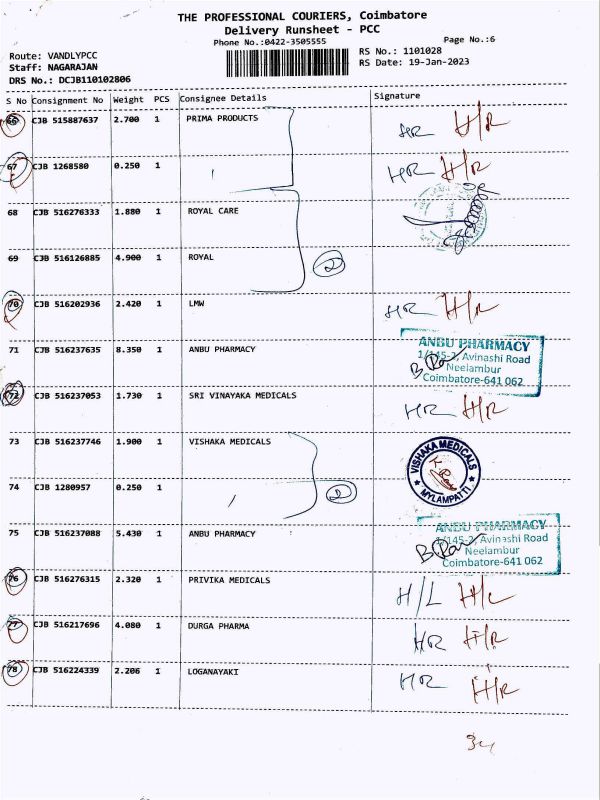 THE PROFESSIONAL COURIERS, Coimbatore
Delivery Runsheet - PCC
Phone No.:0422-3505555
Page No.:6
Route: VANDLYPCC
RS No.: 1101028
Staff: NAGARAJAN
RS Date: 19-Jan-2023
DRS No.: DCJB110102806
S No Consignment No Weight PCS Consignee Details Signature
66 CJB 515887637 2.700 1 PRIMA PRODUCTS HR H/R
67 CJB 1268580 0.250 1 HR H/R
68 CJB 516276333 1.880 1 ROYAL CARE
69 CJB 516126885 4.900 1 ROYAL 2
70 CJB 516202936 2.420 1 LMW HR H/R
71 CJB 516237635 8.350 1 ANBU PHARMACY
ANBU PHARMACY
1/145-2, Avinashi Road
Neelambur
Coimbatore-641 062
72 CJB 516237053 1.730 1 SRI VINAYAKA MEDICALS HR H/R
73 CJB 516237746 1.900 1 VISHAKA MEDICALS
VISHAKA MEDICALS
MYLAMPATTI
74 CJB 1280957 0.250 1 2
75 CJB 516237088 5.430 1 ANBU PHARMACY
ANBU PHARMACY
1/145-2, Avinashi Road
Neelambur
Coimbatore-641 062
76 CJB 516276315 2.320 1 PRIVIKA MEDICALS H/L H/L
77 CJB 516217696 4.080 1 DURGA PHARMA HR H/R
78 CJB 516224339 2.206 1 LOGANAYAKI HR H/R